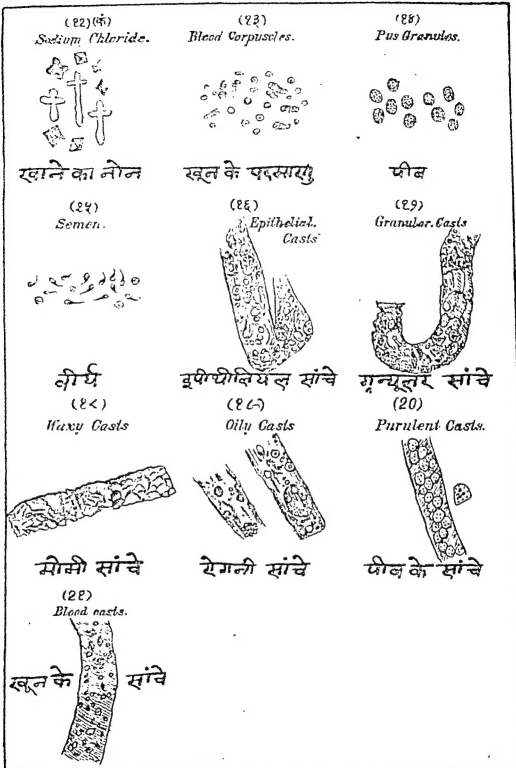 (१२)(कं)
Sodium Chloride.
खाने का नोन
(१३)
Blood Corpuscles.
खून के
(१४)
Pus Granules.
पीब
(१५)
Semen.
वीर्य
(१६)
Epithelial.
Casts
इपीथीलियल सांचे
(१७)
Granular. Casts
ग्रन्यूलर सांचे
(१८)
Waxy Casts
मोमी सांचे
(१९)
Oily Casts
रोगनी सांचे
(20)
Purulent Casts.
पीब के सांचे
(२१)
Blood casts.
खून के सांचे